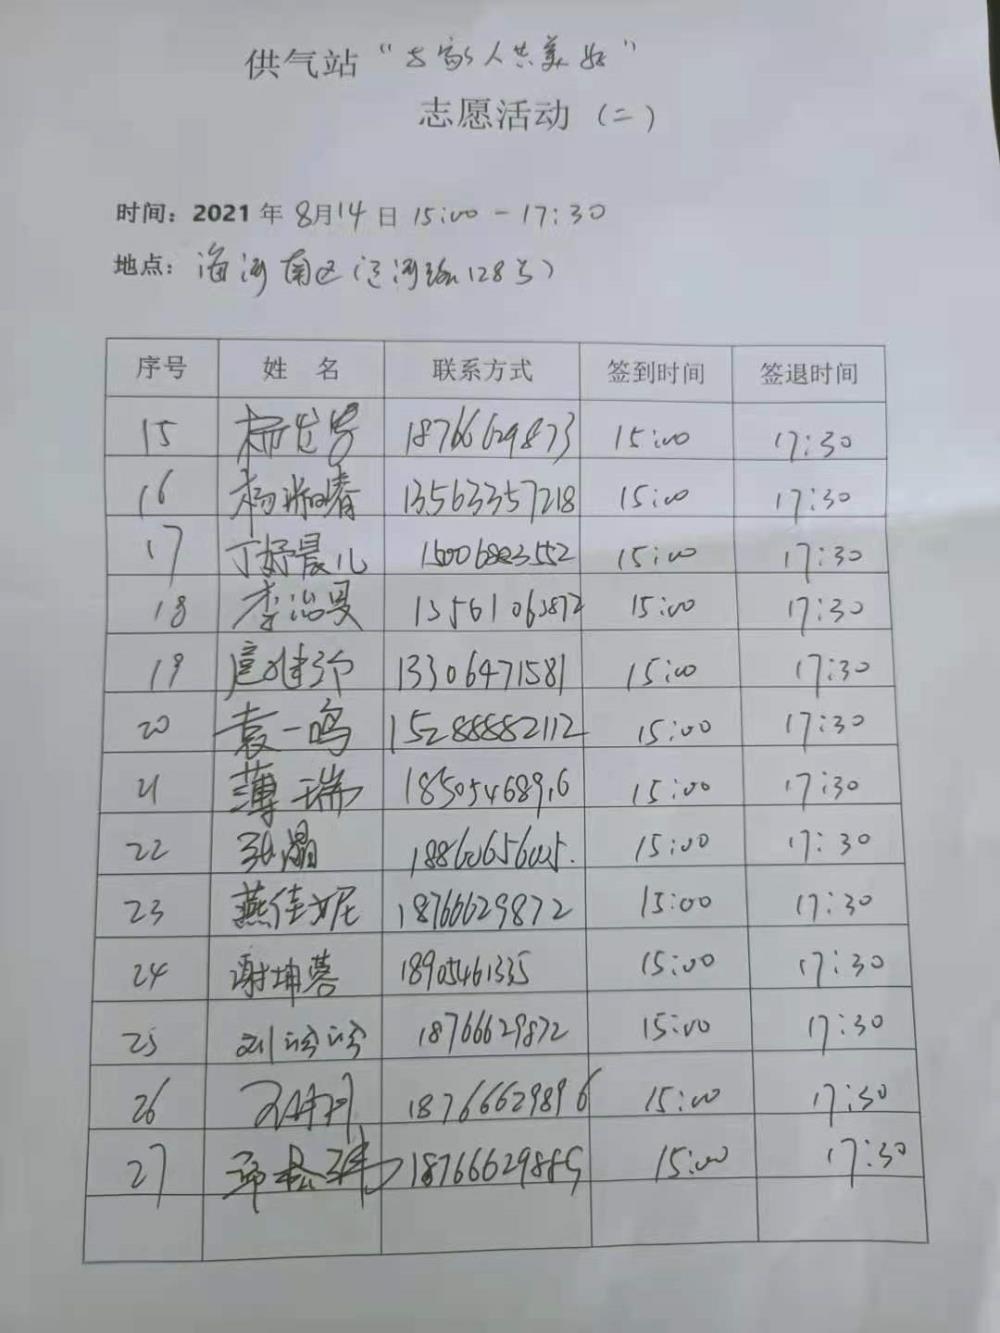 供气站“ 家人共美好”
志愿活动（二）
时间：2021 年 8月14日 15:00-17:30
地点：海河南区( 河路128号)
序号 姓 名 联系方式 签到时间 签退时间
15 杨 18766629873 15:00 17:30
16 杨 春 13563357218 15:00 17:30
17 丁舒晨儿 15006803552 15:00 17:30
18 李 13561063872 15:00 17:30
19 13306471581 15:00 17:30
20 袁一鸣 15288882112 15:00 17:30
21 薄瑞 18505468916 15:00 17:30
22 张晶 15:00 17:30
23 燕佳妮 18766629872 15:00 17:30
24 谢坤蓉 18905461335 15:00 17:30
25 刘 18766629872 15:00 17:30
26 18766629896 15:00 17:30
27 18766629885 15:00 17:30